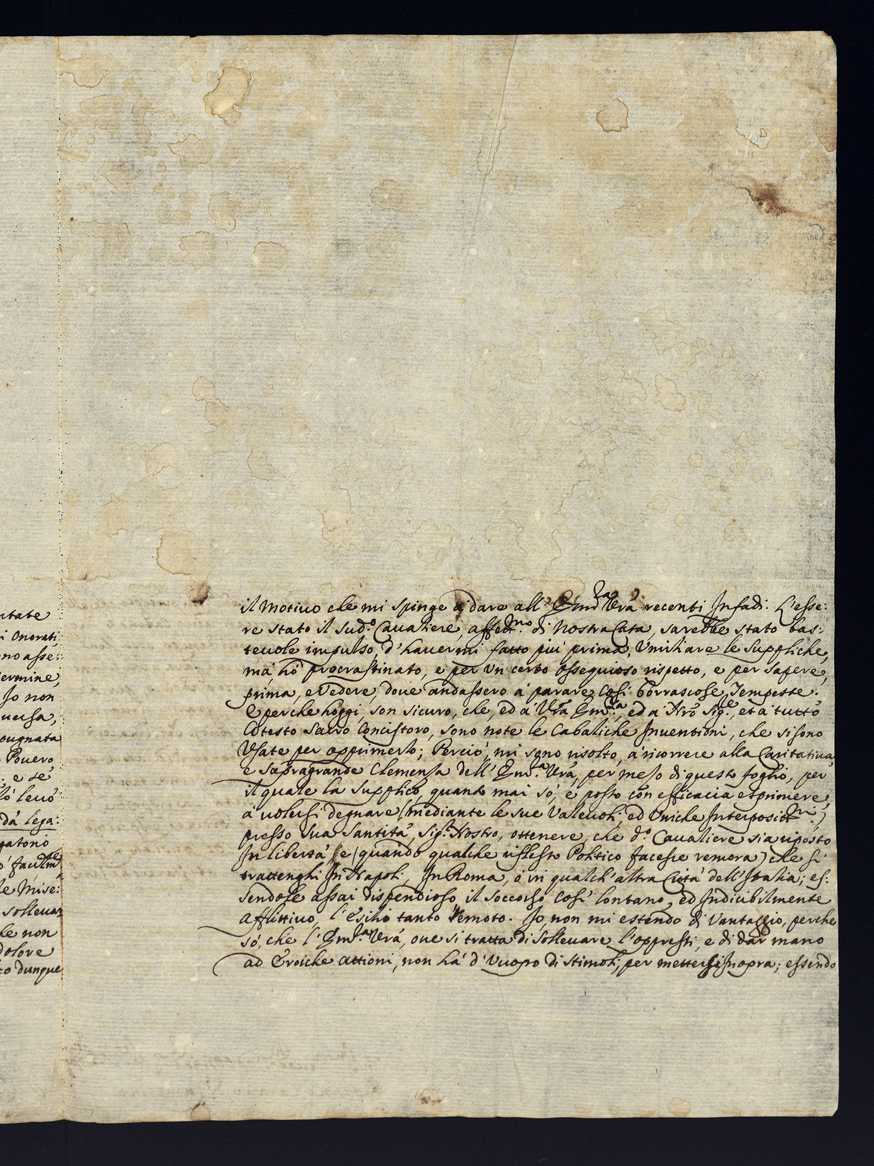 ntate
i Onorati
no asse:
ermine,
Io non
uersa,
pugnata
Pouero
e se
lò leuò
dà lega:
gatono
le Mise:
solleuar
he non
dolore
co dunque
il Motiuo che mi spinge a dare all' Em.za Vra recenti Infadi. L'esse:
re stato il sud.o Caualiere affed.mo di Nostra Casa, sarebbe stato bas:
teuole impulso, d'hauermi fatto più prima, Vmiliare le Suppliche,
mà hò procrastinato, e per vn certo ossequioso rispetto, e per sapere,
prima, e Vedere, doue andassero à parare così borrascose Tempeste.
E perche hoggi, son sicuro, che, ed à Vra Em.za ed a Nro Sig.re, et à tutto
Cotesto Sacro Concistoro, sono note le Cabaliche Inuentioni, che si sono
Vsate per opprimerlo; Perciò, mi sono risolto, à ricorrere alla Caritatiua,
e Sopragrande Clemenza dell' Em.za Vra, per mezo di questo foglio, per
il quale la Supplico, quanto mai sò, e posso con efficacia esprimere,
à uolersi degnare (mediante le sue Valeuoli ed Vniche Interpositio.ni)
presso Sua Santità Sig.r Nostro, ottenere che d.o Caualiere sia riposto
In libertà (e (quando qualche riflesso Politico facesse remora) che si
trattenghi In Napoli, In Roma, ò in qualch'altra Città dell' Italia; es:
sendole assai dispendioso il soccorso così lontano, ed Indicibilmente
afflittiuo, l'esilio tanto remoto. Io non mi estendo di Vantaggio, perche
sò, che l' Em.za Vra, oue si tratta di solleuare l'oppressi, e di dar mano
ad Eroiche Attioni, non hà d'Vuopo di stimoli, per mettersi In opra; essendo